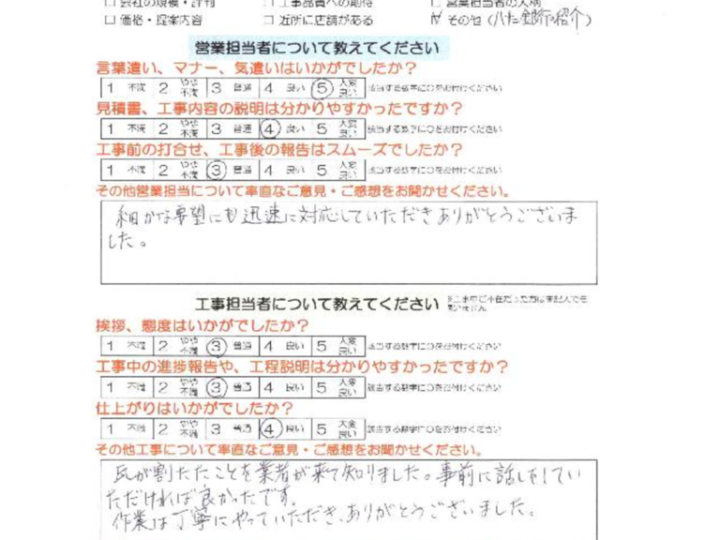 □ 会社の規模・評判 □ 工事品質への期待 □ 営業担当者の人柄
□ 価格・提案内容 □ 近所に店舗がある ☑ その他 (八十二銀行紹介)
営業担当者について教えてください
言葉遣い、マナー、気遣いはいかがでしたか?
1 不満 2 やや不満 3 普通 4 良い 5 大変良い 該当する数字に○をお付けください
見積書、工事内容の説明は分かりやすかったですか?
1 不満 2 やや不満 3 普通 4 良い 5 大変良い 該当する数字に○をお付けください
工事前の打合せ、工事後の報告はスムーズでしたか?
1 不満 2 やや不満 3 普通 4 良い 5 大変良い 該当する数字に○をお付けください
その他営業担当について率直なご意見・ご感想をお聞かせください。
細かな要望にも迅速に対応していただきありがとうございま
した。
工事担当者について教えてください
挨拶、態度はいかがでしたか?
1 不満 2 やや不満 3 普通 4 良い 5 大変良い 該当する数字に○をお付けください
工事中の進捗報告や、工程説明は分かりやすかったですか?
1 不満 2 やや不満 3 普通 4 良い 5 大変良い 該当する数字に○をお付けください
仕上がりはいかがでしたか?
1 不満 2 やや不満 3 普通 4 良い 5 大変良い 該当する数字に○をお付けください
その他工事について率直なご意見・ご感想をお聞かせください。
瓦が割れたことを業者が来て知りました。事前に話しをしてい
ただければ良かったです。
作業は丁寧にやっていただき、ありがとうございました。